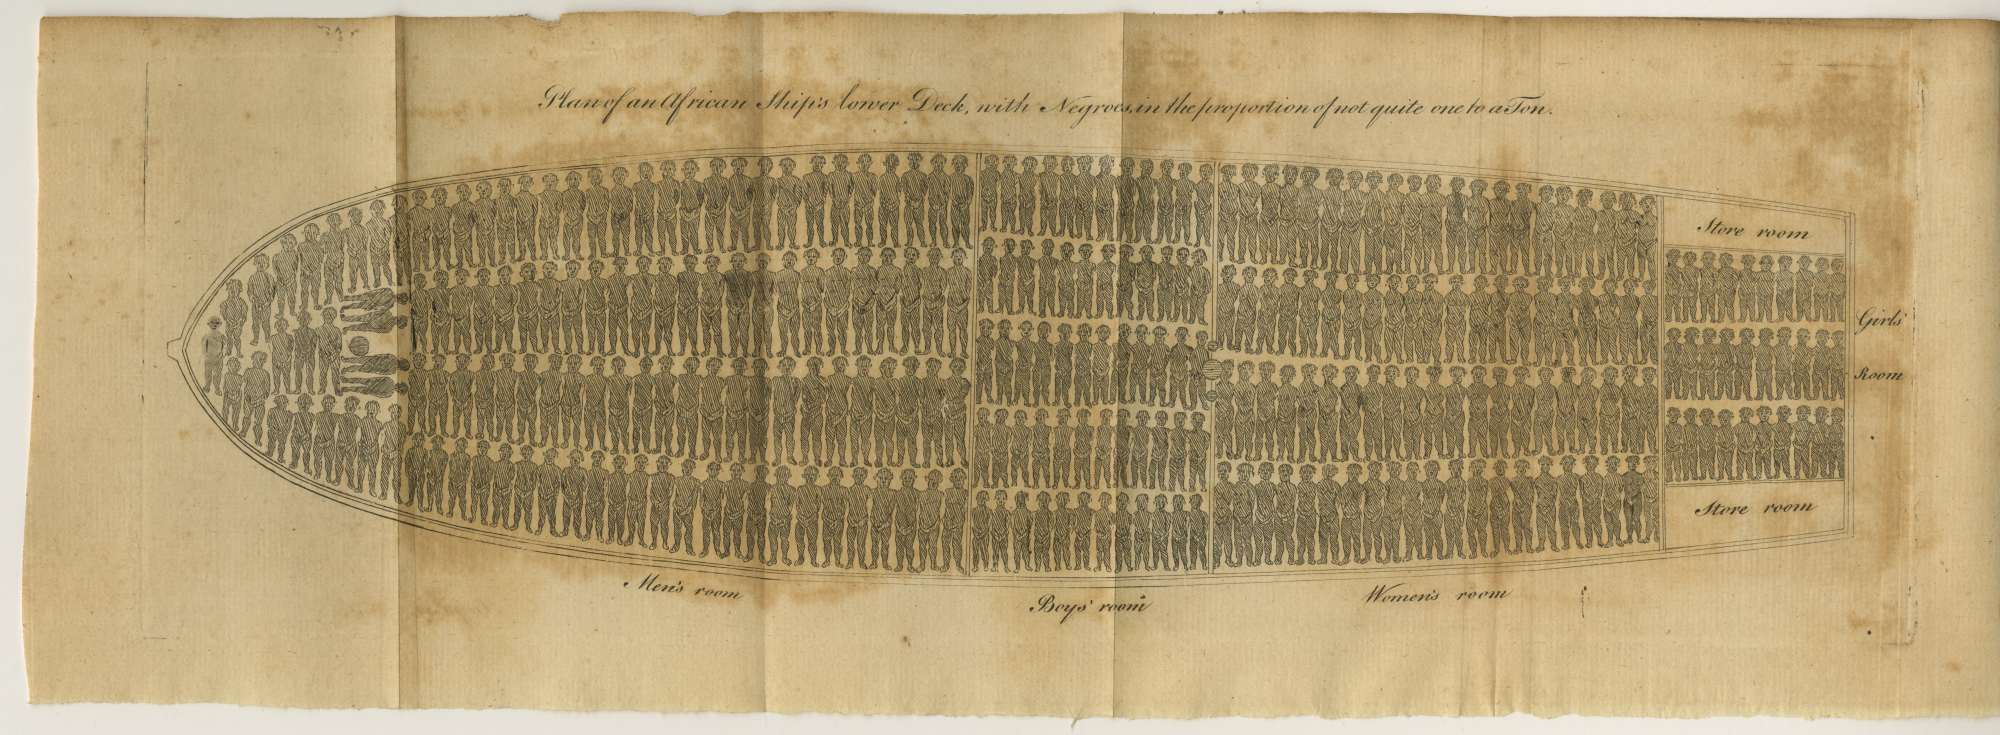 Plan of an African Ship's lower Deck, with Negroes, in the proportion of not quite one to a Ton.
Store room
Girls'
Room
Store room
Men's room
Boys' room
Women's room